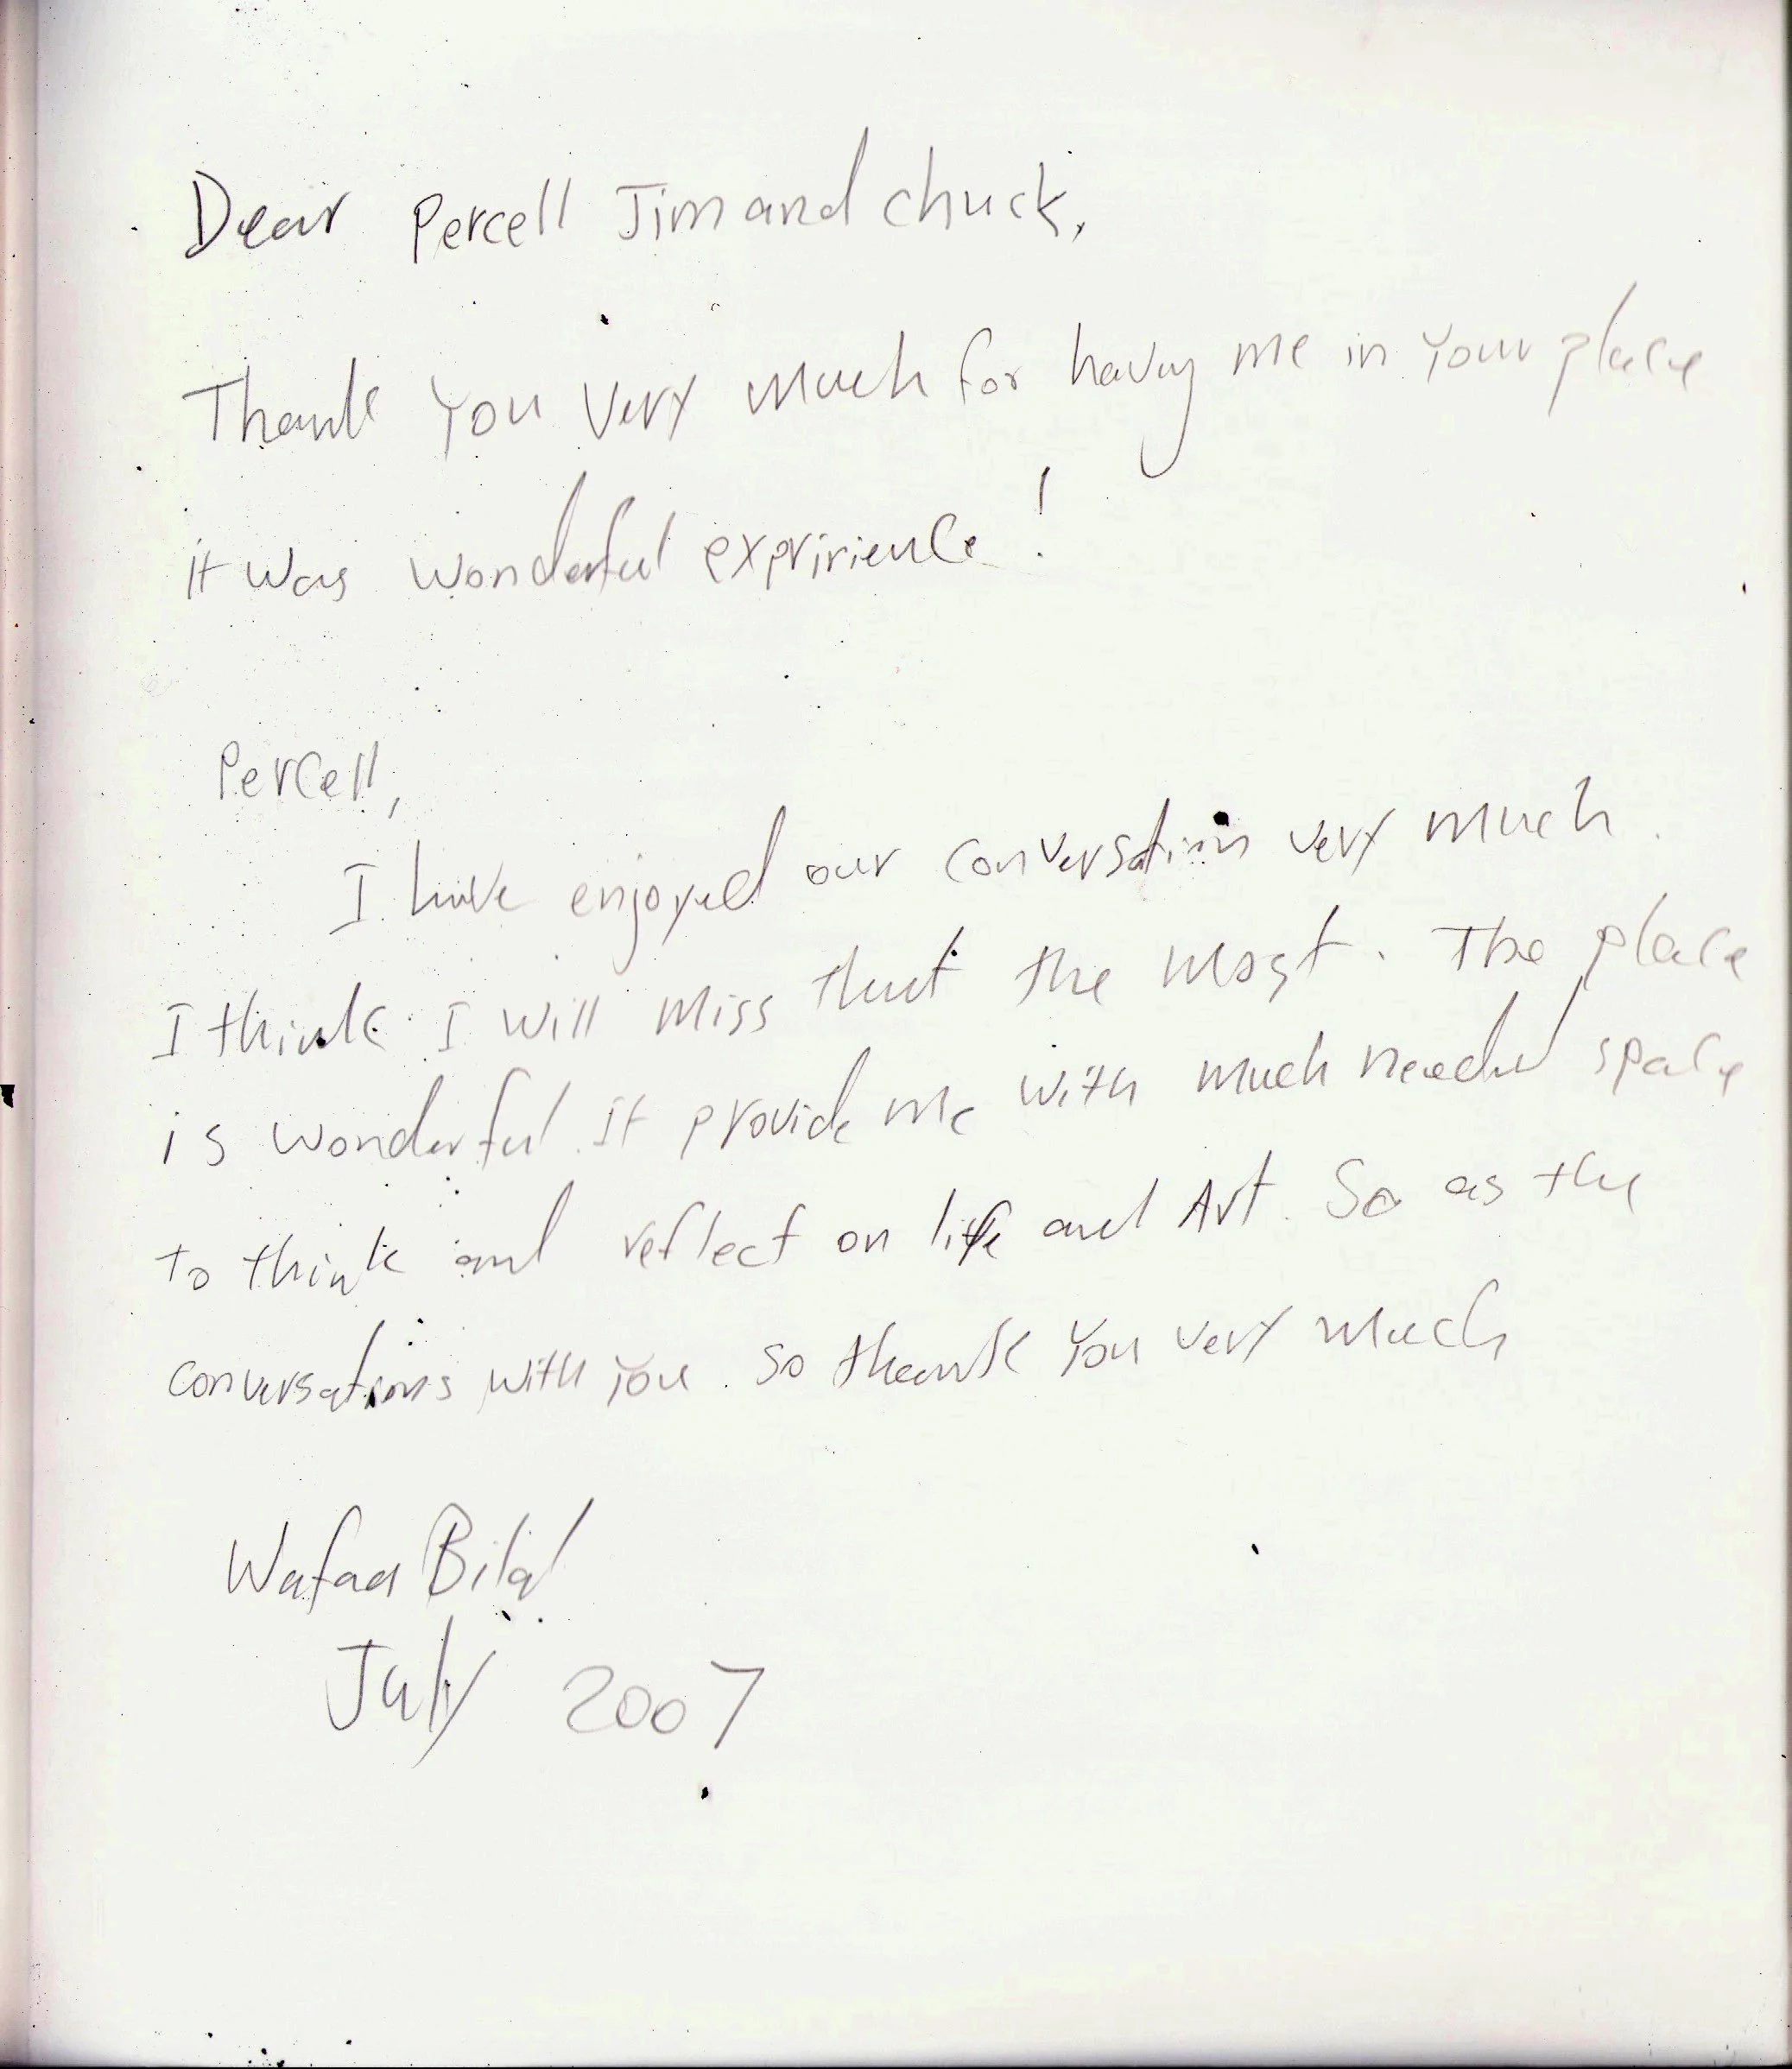 Dear Percell Jim and chuck,
Thank You Very much for having me in Your place
it was wonderful expririence!
Percell,
I have enjoyed our conversations very much.
I think I will miss that the most. The place
is wonderful. It provide me with much needed space
to think and reflect on life and Art. So as the
conversations with You. so thank You very much
Wafaa Bilal
July 2007